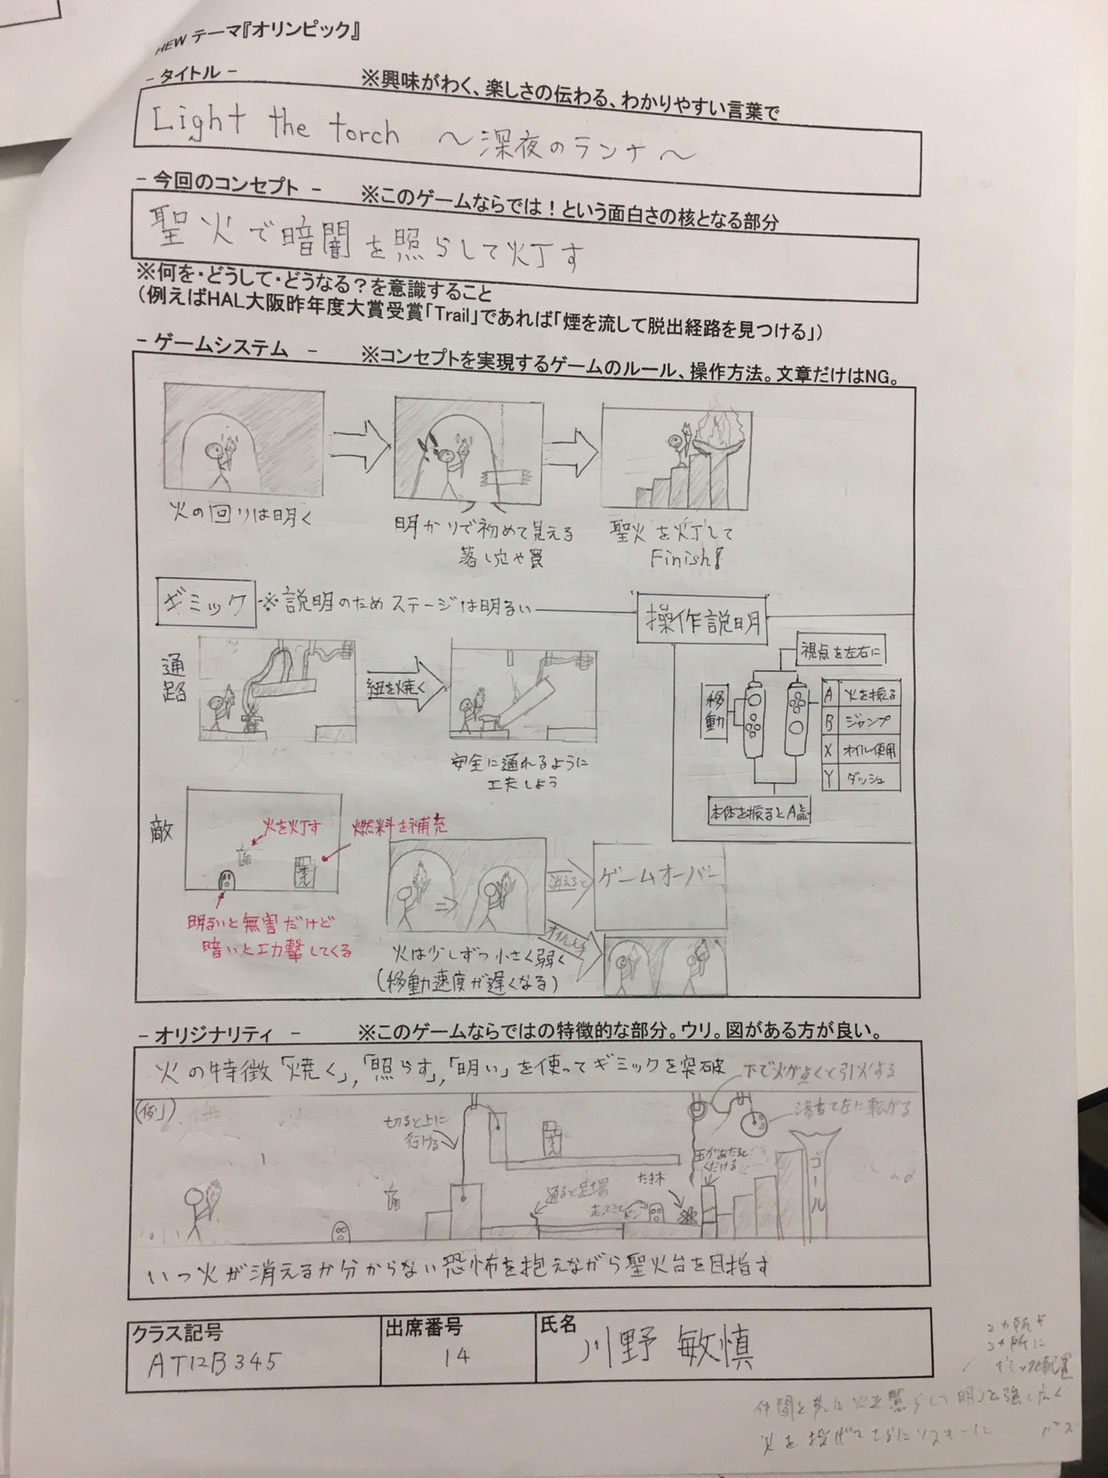 HEW テーマ『オリンピック』
- タイトル -　※興味がわく、楽しさの伝わる、わかりやすい言葉で
Light the torch ～深夜のランナ～
- 今回のコンセプト -　※このゲームならでは！という面白さの核となる部分
聖火で暗闇を照らして灯す
※何を・どうして・どうなる？を意識すること
（例えばHAL大阪昨年度大賞受賞「Trail」であれば「煙を流して脱出経路を見つける」）
- ゲームシステム -　※コンセプトを実現するゲームのルール、操作方法。文章だけはNG。
火の回りは明く
明かりで初めて見える
落し穴や罠
聖火を灯して
Finish!
ギミック ※説明のためステージは明るい
操作説明
通路
紐を焼く
安全に通れるように
工夫しよう
視点を左右に
移動
A 火を振る
B ジャンプ
X オイル使用
Y ダッシュ
本体を振るとA
敵
火を灯す
燃料を補充
明るいと無害だけど
暗いと攻撃してくる
消えると
ゲームオーバー
火は少しずつ小さく弱く
（移動速度が遅くなる）
- オリジナリティ -　※このゲームならではの特徴的な部分。ウリ。図がある方が良い。
火の特徴「焼く」,「照らす」,「明い」を使ってギミックを突破
下で火が点くと引火する
(例)
切ると上に
行ける
落ちて左に転がる
くだける
ゴール
いつ火が消えるか分からない恐怖を抱えながら聖火台を目指す
クラス記号
AT12B345
出席番号
14
氏名
川野 敏慎